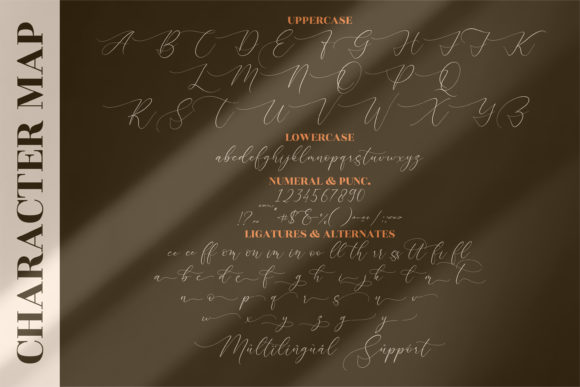 CHARACTER MAP
UPPERCASE
A B C D E F G H I J K
L M N O P Q
R S T U V W X Y Z
LOWERCASE
abcdefghijklmnopqrstuvwxyz
NUMERAL & PUNC.
1234567890
LIGATURES & ALTERNATES
cc ee ff om on im in oo ll th rr ss tt fi fl
a b c d e f g h i j k l a t
n o p q r s u v
w x y z
Mültilingüál Süppört